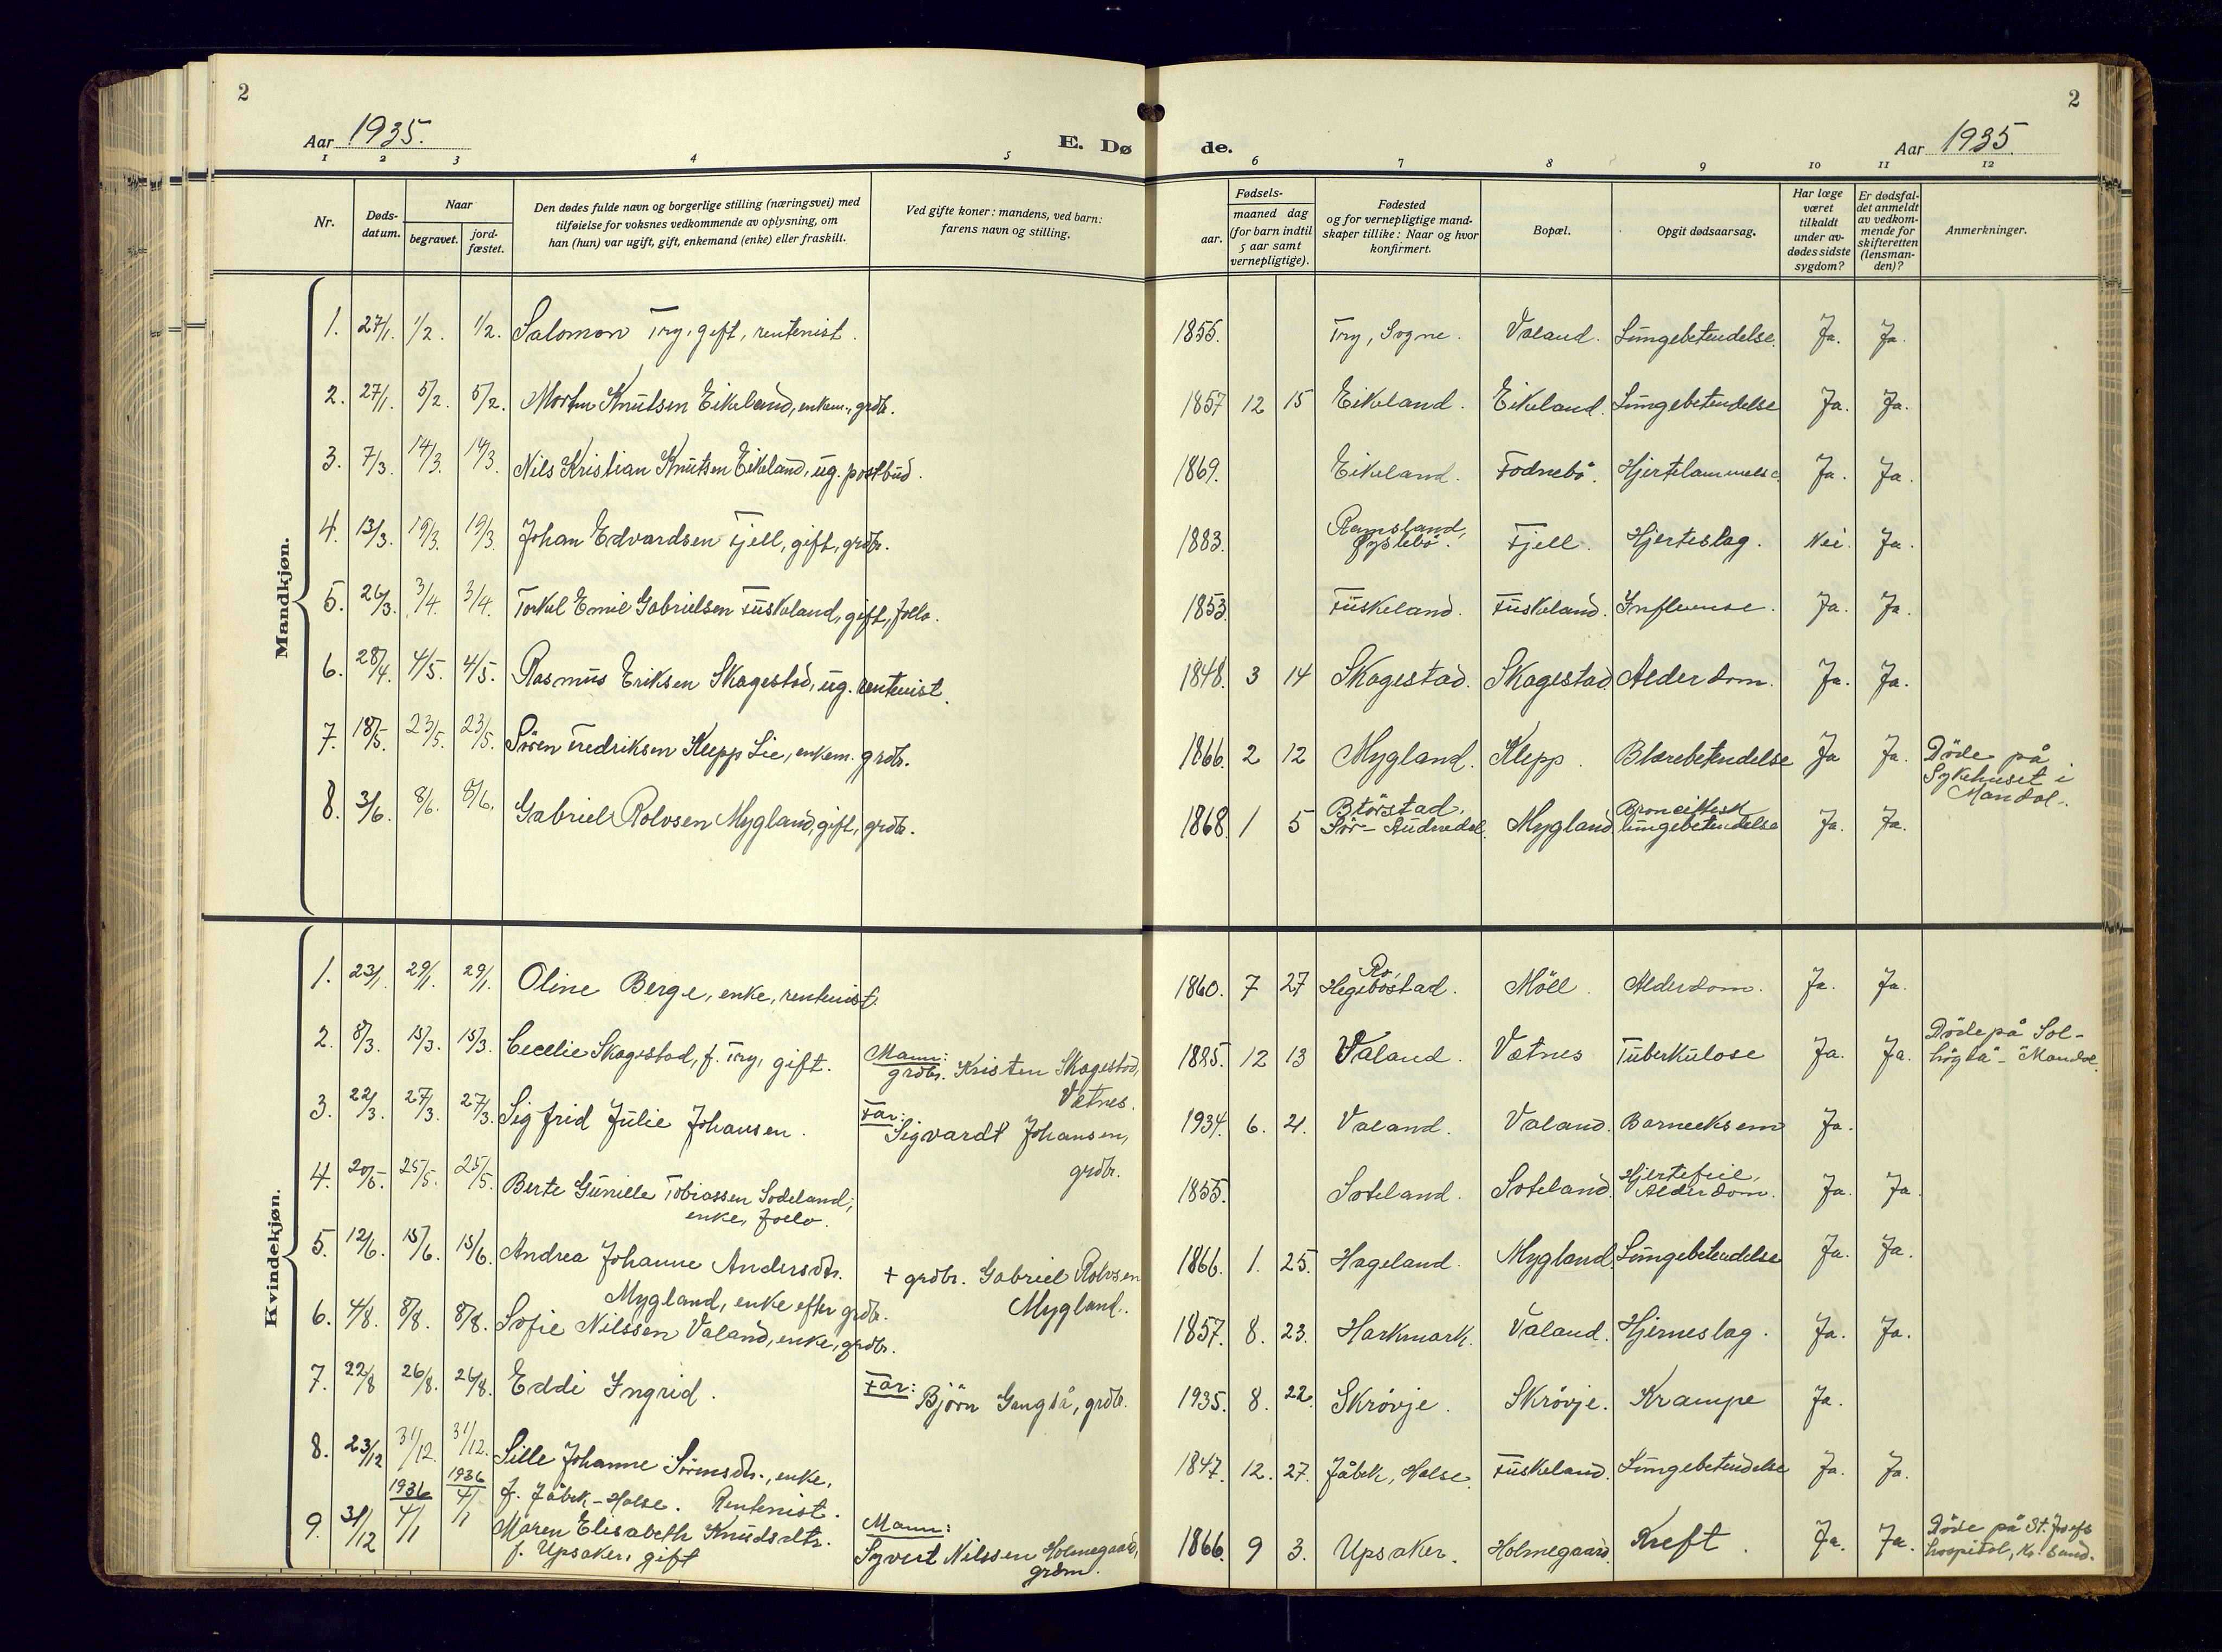 2
Aar 1935.
E. Dø
de.
Aar 1935.
2
1 2 3 4 5 6 7 8 9 10 11 12
Nr.
Døds-
datum.
Naar
begravet.
jord-
fæstet.
Den dødes fulde navn og borgerlige stilling (næringsvei) med
tilføielse for voksnes vedkommende av oplysning, om
han (hun) var ugift, gift, enkemand (enke) eller fraskilt.
Ved gifte koner: mandens, ved barn:
farens navn og stilling.
Fødsels-
aar.
maaned dag
(for barn indtil
5 aar samt
vernepligtige).
Fødested
og for vernepligtige mand-
skaper tillike: Naar og hvor
konfirmert.
Bopæl.
Opgit dødsaarsag.
Har læge
været
tilkaldt
under av-
dødes sidste
sygdom?
Er dødsfal-
det anmeldt
av vedkom-
mende for
skifteretten
(lensman-
den)?
Anmerkninger.
Mandkjøn.
1. 27/1. 1/2. 1/2. Salomon Try, gift, rentenist. 1855. Try, Sogne. Valand. Lungebetendelse. Ja. Ja.
2. 27/1. 5/2. 5/2. Morten Knutsen Eikeland, enkem., grdbr. 1857 12 15 Eikeland. Eikeland. Lungebetendelse Ja. Ja.
3. 7/3. 14/3. 14/3. Nils Kristian Knutsen Eikeland, ug. postbud. 1869. Eikeland. Fodnebö. Hjertelammelse. Ja. Ja.
4. 13/3. 19/3. 19/3. Johan Edvardsen Fjell, gift, grdbr. 1883. Ramsland, Øyslebö. Fjell. Hjerteslag. Nei. Ja.
5. 26/3. 3/4. 3/4. Torkel Emil Gabrielsen Fuskeland, gift, folto. 1853. Fuskeland. Fuskeland. Influense. Ja. Ja.
6. 28/4. 4/5. 4/5. Rasmus Eriksen Skagestad, ug. rentenist. 1848. 3 14 Skagestad. Skagestad Alderdom. Ja. Ja.
7. 18/5. 23/5. 23/5. Sören Fredriksen Klepp Lie, enkem. grdbr. 1866. 2 12 Mygland. Klepp. Blærebetendelse Ja Ja. Döde på
Sykehuset i
Mandal.
8. 3/6. 8/6. 8/6. Gabriel Rolvsen Mygland, gift, grdbr. 1868. 1 5 Sör-Audnedal. Mygland lungebetendelse Ja. Ja.
Kvindekjøn.
1. 23/1. 29/1. 29/1. Oline Berge, enke, rentenist. 1860. 7 27 Ro, Hegebostad. Möll. Alderdom. Ja. Ja.
2. 8/3. 15/3. 15/3. Cecelie Skagestad, f. Try, gift. Mann:
grdbr. Kristen Skagestad,
Vatnes. 1885. 12 13 Valand. Vatnes Tuberkulose Ja. Ja. Döde på Sol-
högda - Mandal.
3. 22/3. 27/3. 27/3. Sigfrid Julie Johansen. Far:
Sigvardt Johansen,
grdbr. 1934. 6. 21. Valand. Valand. Barneeksem Ja.
4. 20/5. 25/5. 25/5. Berte Gunille Tobiassen Sodeland,
enke, folto. 1855. Soteland. Soteland. Hjertefeil,
Alderdom. Ja. Ja
5. 12/6. 15/6. 15/6. Andrea Johanne Andersdtr.
Mygland, enke efter grdbr. + grdbr. Gabriel Rolvsen
Mygland. 1866. 1. 25. Hageland. Mygland. Lungebetendelse Ja. Ja.
6. 4/8. 8/8. 8/8. Sofie Nilssen Valand, enke, grdbr. 1857. 8. 23. Harkmark. Valand. Hjerneslag. Ja. Ja.
7. 22/8 26/8. 26/8. Eddi Ingrid. Far:
Björn Gangså, grdbr. 1935. 8. 22. Skrövje. Skrövje. Krampe Ja.
8. 23/12 31/12. 31/12. Sille Johanne Sörensdtr., enke,
f. Jåbek-Halse. Rentenist. 1847. 12. 27. Jåbek, Halse. Fuskeland. Lungebetendelse Ja. Ja.
9. 31/12 1936 4/1 1936 4/1 Maren Elisabeth Knudsdtr.
f. Upsaker, gift Mann:
Syvert Nilssen Holmegaard,
grdm. 1866. 9 3. Upsaker. Holmegaard. Kreft. Ja. Ja. Döde på St. Josefs
hospital, Kr. sand.